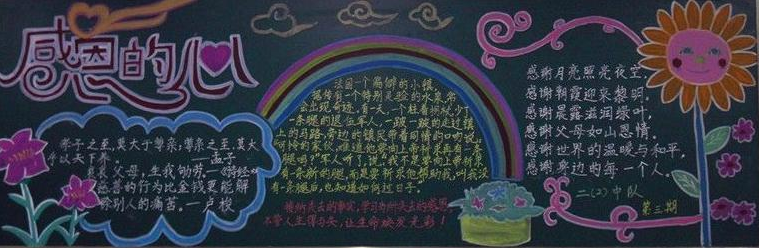 感恩的心
孝子之至,莫大于尊亲;尊亲之至,莫大
乎以天下养。 ——孟子
哀哀父母,生我劬劳。——《诗经》
慈善的行为比金钱更能解
除别人的痛苦。—卢梭
法国一个偏僻的小镇,
据传有一个特别灵验的水泉,常
会出现奇迹。有一天,一个拄着拐杖,少了
一条腿的退伍军人,一跛一跛的走过镇
上的马路,旁边的镇民带着同情的口吻说:
“可怜的家伙,难道他要向上帝祈求再有一
腿吗?”军人听了,说:“我不是要向上帝祈求
有一条新的腿,而是要祈求他帮助我,叫我没
有一条腿后,也知道如何过日子。”
接纳失去的事实,学习为所失去的感恩,
不管人生得与失,让生命焕发光彩!
感谢月亮照亮夜空,
感谢朝霞迎来黎明,
感谢晨露滋润绿叶,
感谢父母如山恩情。
感谢世界的温暖与和平,
感谢身边的每一个人。
二(2)中队
第三期